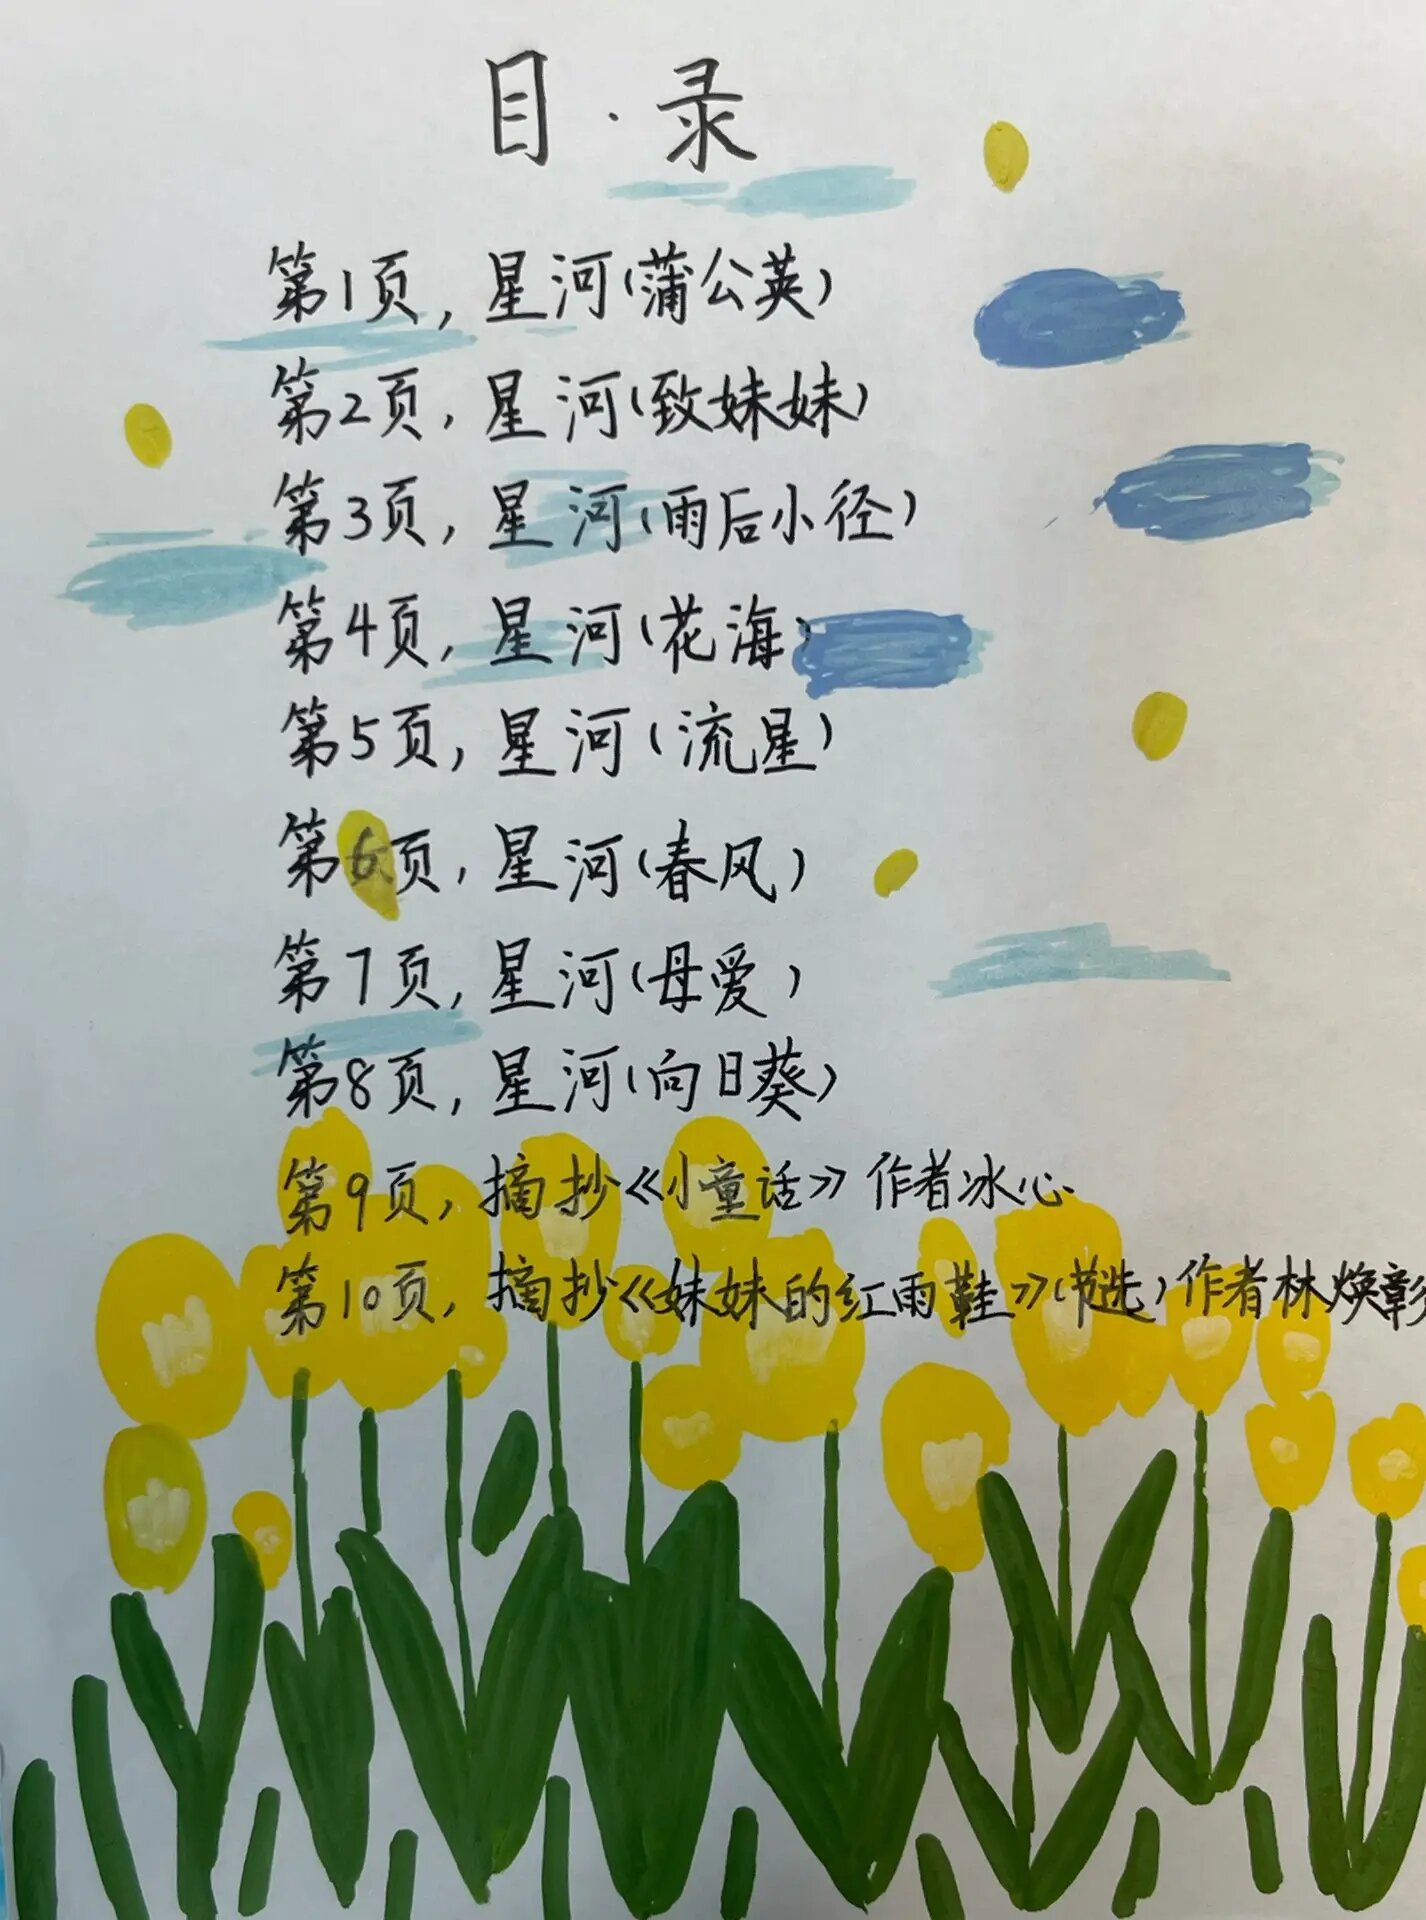 目·录
第1页，星河(蒲公英)
第2页，星河(致妹妹)
第3页，星河(雨后小径)
第4页，星河(花海)
第5页，星河(流星)
第6页，星河(春风)
第7页，星河(母爱)
第8页，星河(向日葵)
第9页，摘抄《小童话》作者冰心
第10页，摘抄《妹妹的红雨鞋》(节选)作者林焕彰